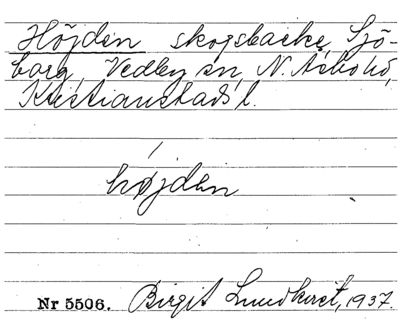 Höjden skogsbacke, Sjö-
borg, Vedby sn, N. Åsbo hd,
Kristianstads l.
højden
Nr 5506. Birgit Lundkvist, 1937.